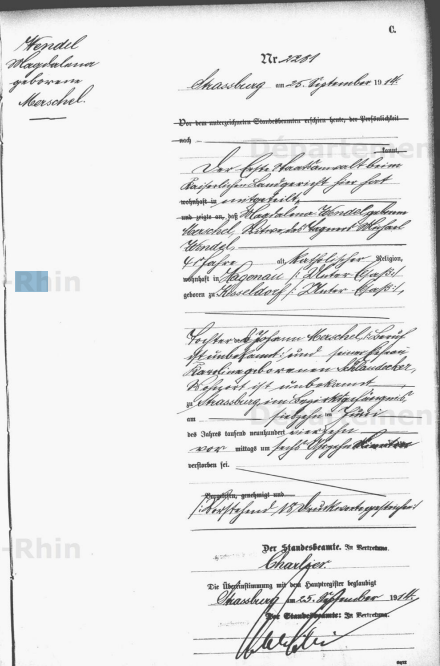 C.
Wendel
Magdalena
geborene
Merschel.
Nr. 2201
Strassburg am 25. September 1914.
Vor dem unterzeichneten Standesbeamten erschien heute, der Persönlichkeit
nach
kannt,
Der Erste Staatsanwalt beim
Kaiserlichen Landgericht hier hat
wohnhaft in mitgeteilt,
und zeigte an, daß Magdalena Wendel geborene
Merschel, Witwe des
Wendel,
Jahre alt, katholischer Religion,
wohnhaft in Hagenau (: Unter-Elsaß :)
geboren zu (: Unter-Elsaß :),
Tochter des Johann Merschel, Beruf
ist unbekannt, und seiner Ehefrau
geborenen
Wohnort ist unbekannt
zu Strassburg im Bezirksgefängnis
am
des Jahres tausend neunhundert vierzehn
vor mittags um sechs Uhr Minuten
verstorben sei.
Vorgelesen, genehmigt und
(: Vorstehend 18 Druckworte gestrichen :)
Der Standesbeamte. In Vertretung.
Charlier.
Die Übereinstimmung mit dem Hauptregister beglaubigt
Strassburg am 25. September 1914.
Der Standesbeamte: In Vertretung.
Département
-Rhin
Département
-Rhin